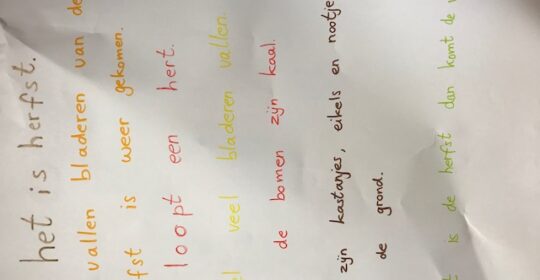 het is herfst.
vallen bladeren van de
is weer gekomen.
loopt een hert.
veel bladeren vallen.
de bomen zijn kaal.
zijn kastanjes, eikels en
de grond.
is de herfst dan komt de